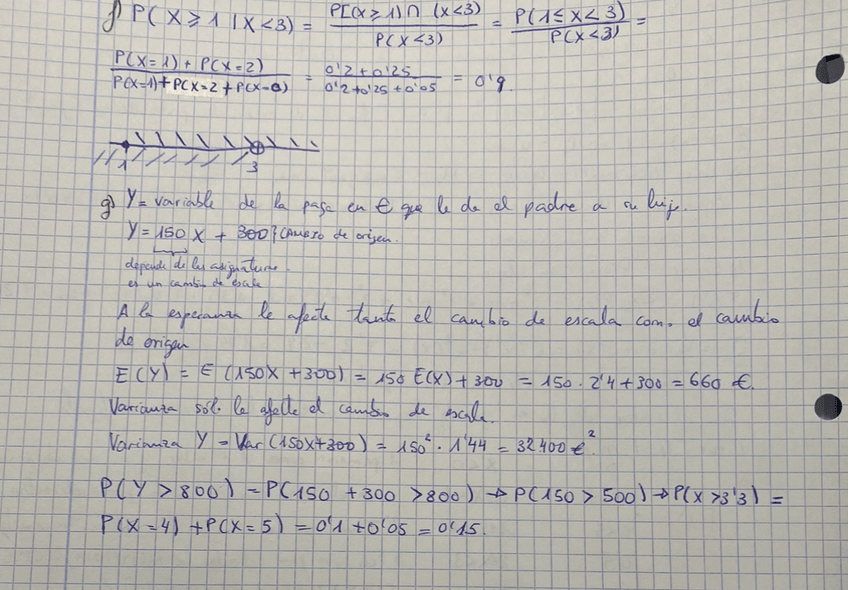 f) P(X ≥ 1 | X < 3) = P[(X ≥ 1) ∩ (X < 3)] / P(X < 3) = P(1 ≤ X < 3) / P(X < 3) =
P(X = 1) + P(X = 2) / P(X=1) + P(X=2 + P(X=0) = 0'2 + 0'25 / 0'2 + 0'25 + 0'05 = 0'9.
1 3
g) Y = variable de la paga en € que le da el padre a su hijo.
Y = 150 X + 300 } CAMBIO de origen.
depende de las asignaturas.
es un cambio de escala
A la esperanza le afecta tanto el cambio de escala como el cambio
de origen
E(Y) = E(150X + 300) = 150 E(X) + 300 = 150 · 2'4 + 300 = 660 €.
Varianza sólo le afecta el cambio de escala.
Varianza Y = Var(150X + 300) = 150² · 1'44 = 32400 €².
P(Y > 800) = P(150 + 300 > 800) → P(150 > 500) → P(X > 3'3) =
P(X = 4) + P(X = 5) = 0'1 + 0'05 = 0'15.